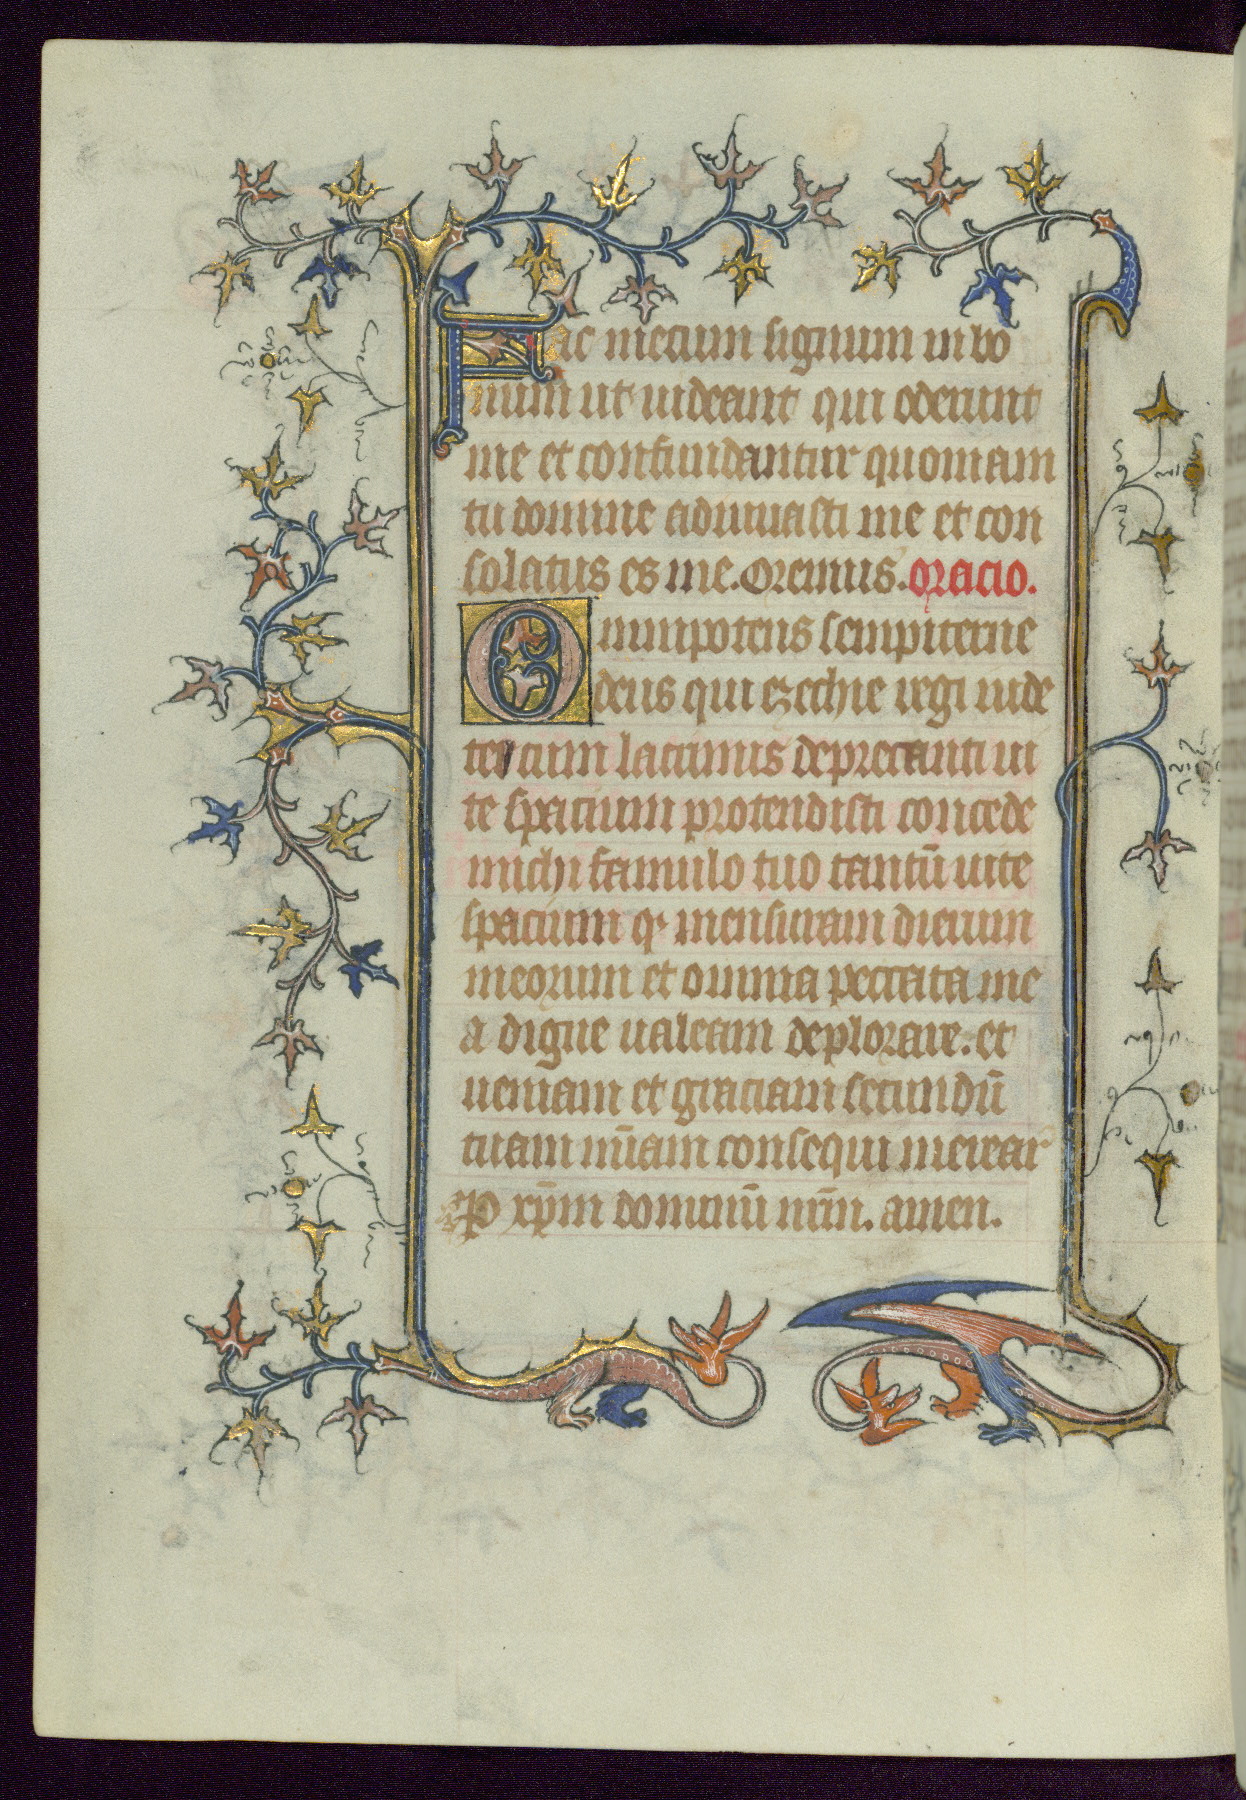 Fac mecum signum in bo
num ut uideant qui oderunt
me et confundantur quoniam
tu domine adiuuasti me et con
solatus es me. Oremus. oracio.
Omnipotens sempiterne
deus qui ezechie regi iude
te cum lacrimis deprecanti ui
te spacium protendisti concede
michi famulo tuo tantū uite
spacium qͥ mensuram dierum
meorum et omnia peccata me
a digne ualeam deplorare. et
ueniam et graciam secundū
tuam mīam consequi merear
P xp̄m dominū nr̄m. amen.